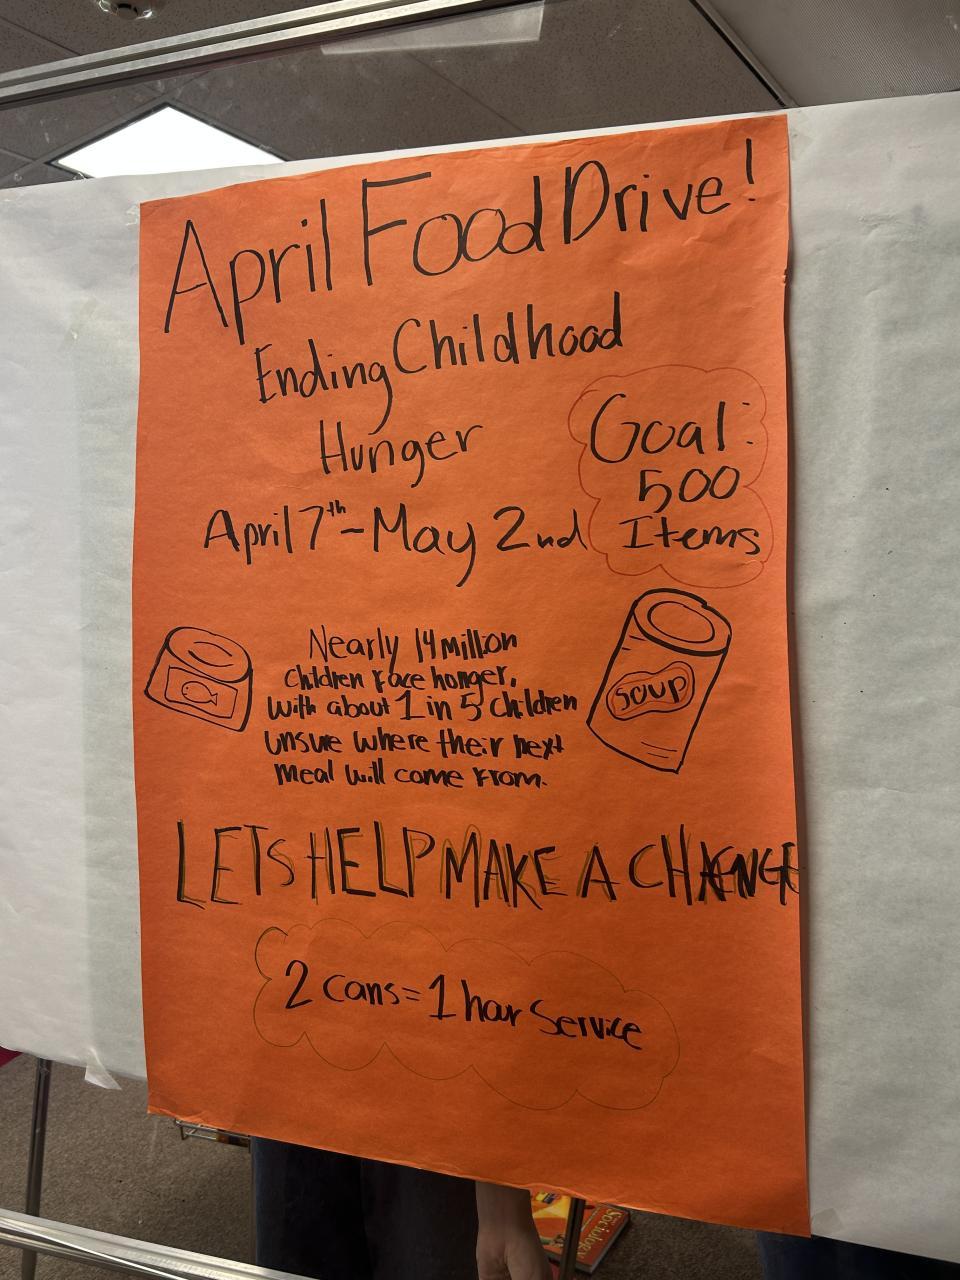 April Food Drive!
Ending Childhood
Hunger
Goal:
500
Items
April 7th - May 2nd
Nearly 14 million
children face honger,
with about 1 in 5 children
unsure where their next
meal will come from.
SOUP
LETS HELP MAKE A CHANGE
2 cans = 1 hour Service
Sociology